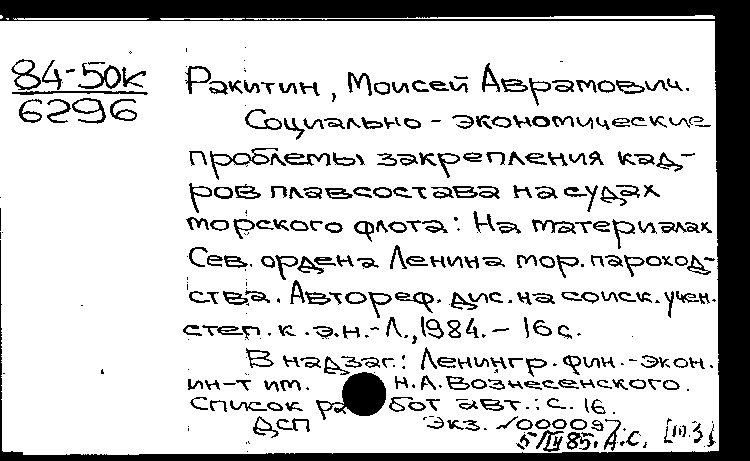 84-50к
6296
Ракитин, Моисей Аврамович.
Социально - экономические
проблемы закрепления кад-
ров плавсостава на судах
морского флота: На материалах
Сев. ордена Ленина мор. пароход-
ства. Автореф. дис. на соиск. учен.
степ. к. э. н. - Л., 1984. - 16 с.
В надзаг.: Ленингр. фин.-экон.
ин-т им. Н.А. Вознесенского.
Список работ авт.: с. 16.
ДСП Экз. №000097.
5/III 85. А.С.